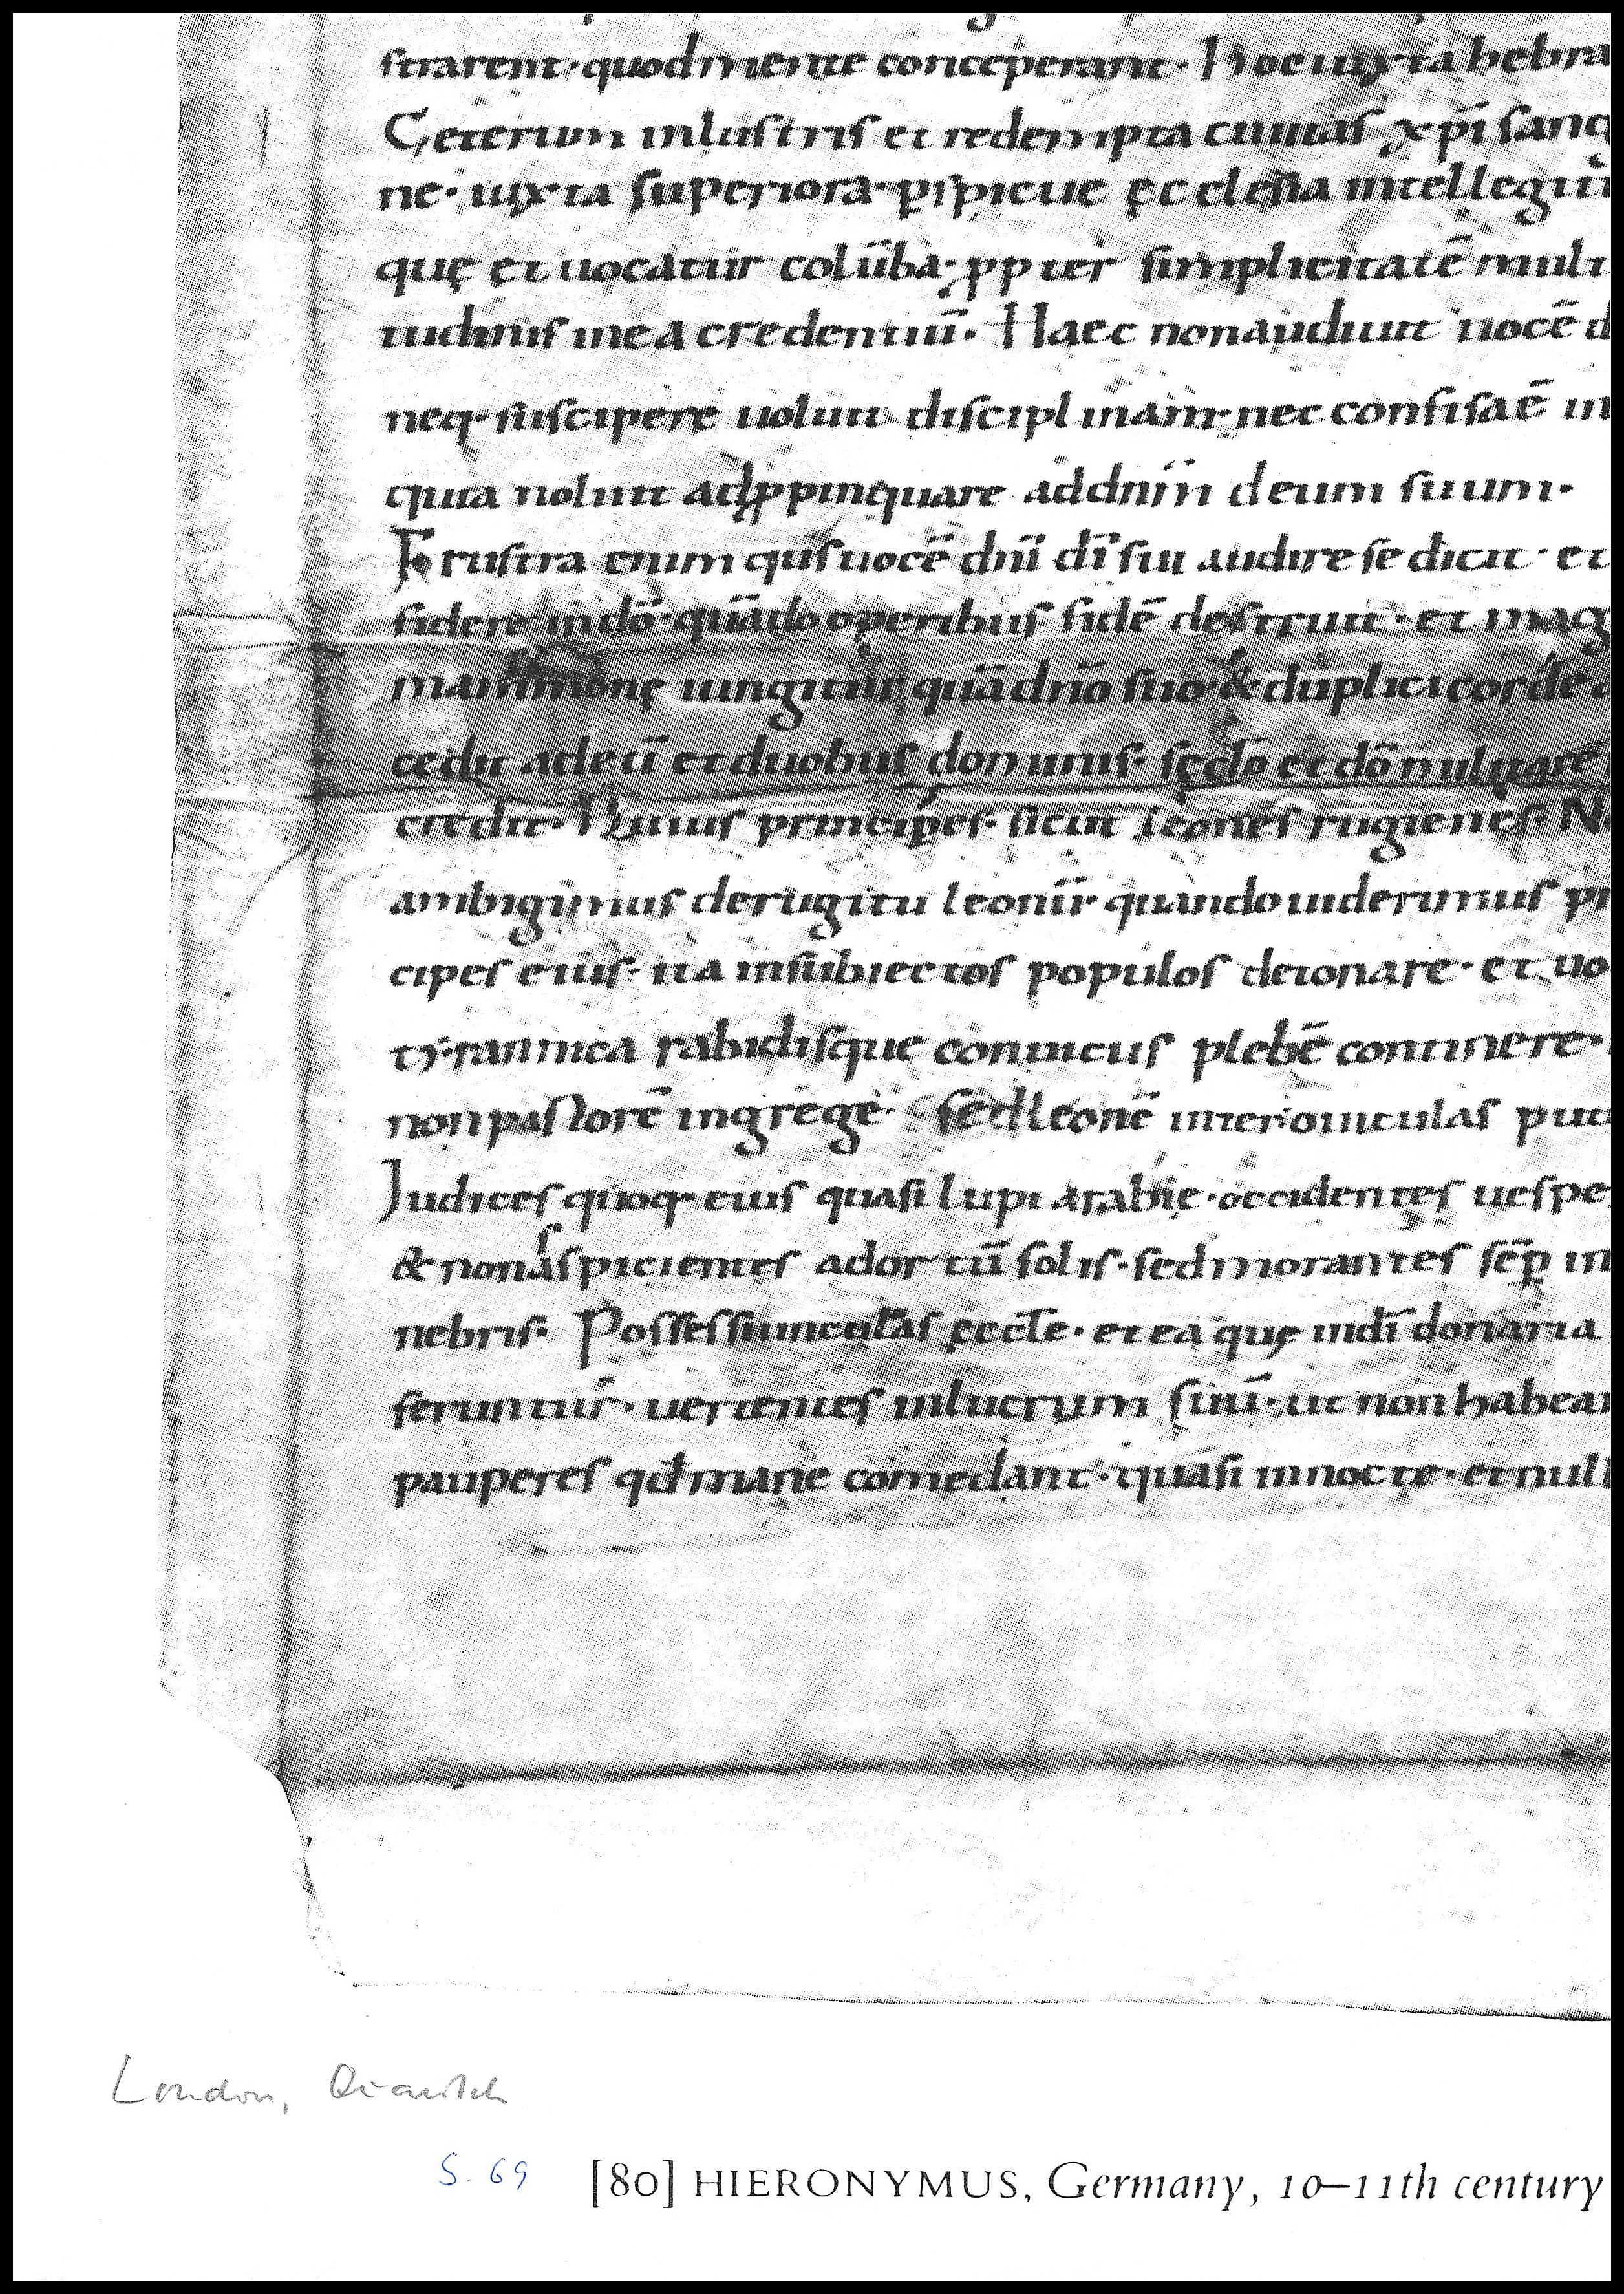 strarent · quod mente conceperant · Hoc iuxta hebra
Ceterum inlustris et redempta ciuitas xp̄i sang
ne · iuxta superiora · ꝑspicue ęcclesia intellegit
quę et uocatur colūba · ꝓpter simplicitatē multi
tudinis in ea credentiū · Haec non audiuit uocē d
neq · suscipere uoluit disciplinam · nec confisa ē in
quia noluit adꝓpinquare ad dnm̄ deum suum ·
Frustra enim quis uocē dn̄i dī sui audire se dicit · et
fidere in dō · quādo operibus fidē destruit · et mag
mammonę iungitur quā dn̄o suo · & duplici corde a
cedit ad eū et duobus dominis · sęclo et dō militare
credit · Huius principes · sicut leones rugientes · N
ambigimus de rugitu leonū · quando uiderimus pr
cipes eius · ita in subiectos populos detonare · et uo
tyrannica rabidisque conuiciis plebē continere ·
non pastorē in grege · sed leonē inter ouiculas put
Iudices quoq · eius quasi lupi arabię · occidentes uespe
& non aspicientes ad ortū solis · sed morantes sēꝑ in
nebris · Possessiunculas ęccłe · et ea quę in dī donaria
feruntur · uertentes in lucrum suū · ut non habean
pauperes qđ mane comedant · quasi in nocte · et null
London, Quaritch
S. 69
[80] HIERONYMUS, Germany, 10–11th century